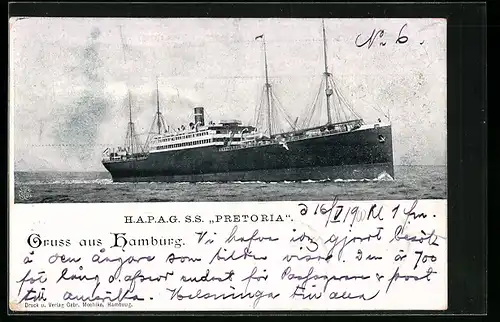 No 6.
H.A.P.A.G. S.S. „PRETORIA“.
d 16/ 19 Kl 1
Gruss aus Hamburg. Vi hafva i gjort besök
å den ångare som bilden visar. Den är 700
fot lång o. afser endast för Passagerare o post
till amerika. Helsninga till alla
Druck u. Verlag Gebr. Moshike, Hamburg.